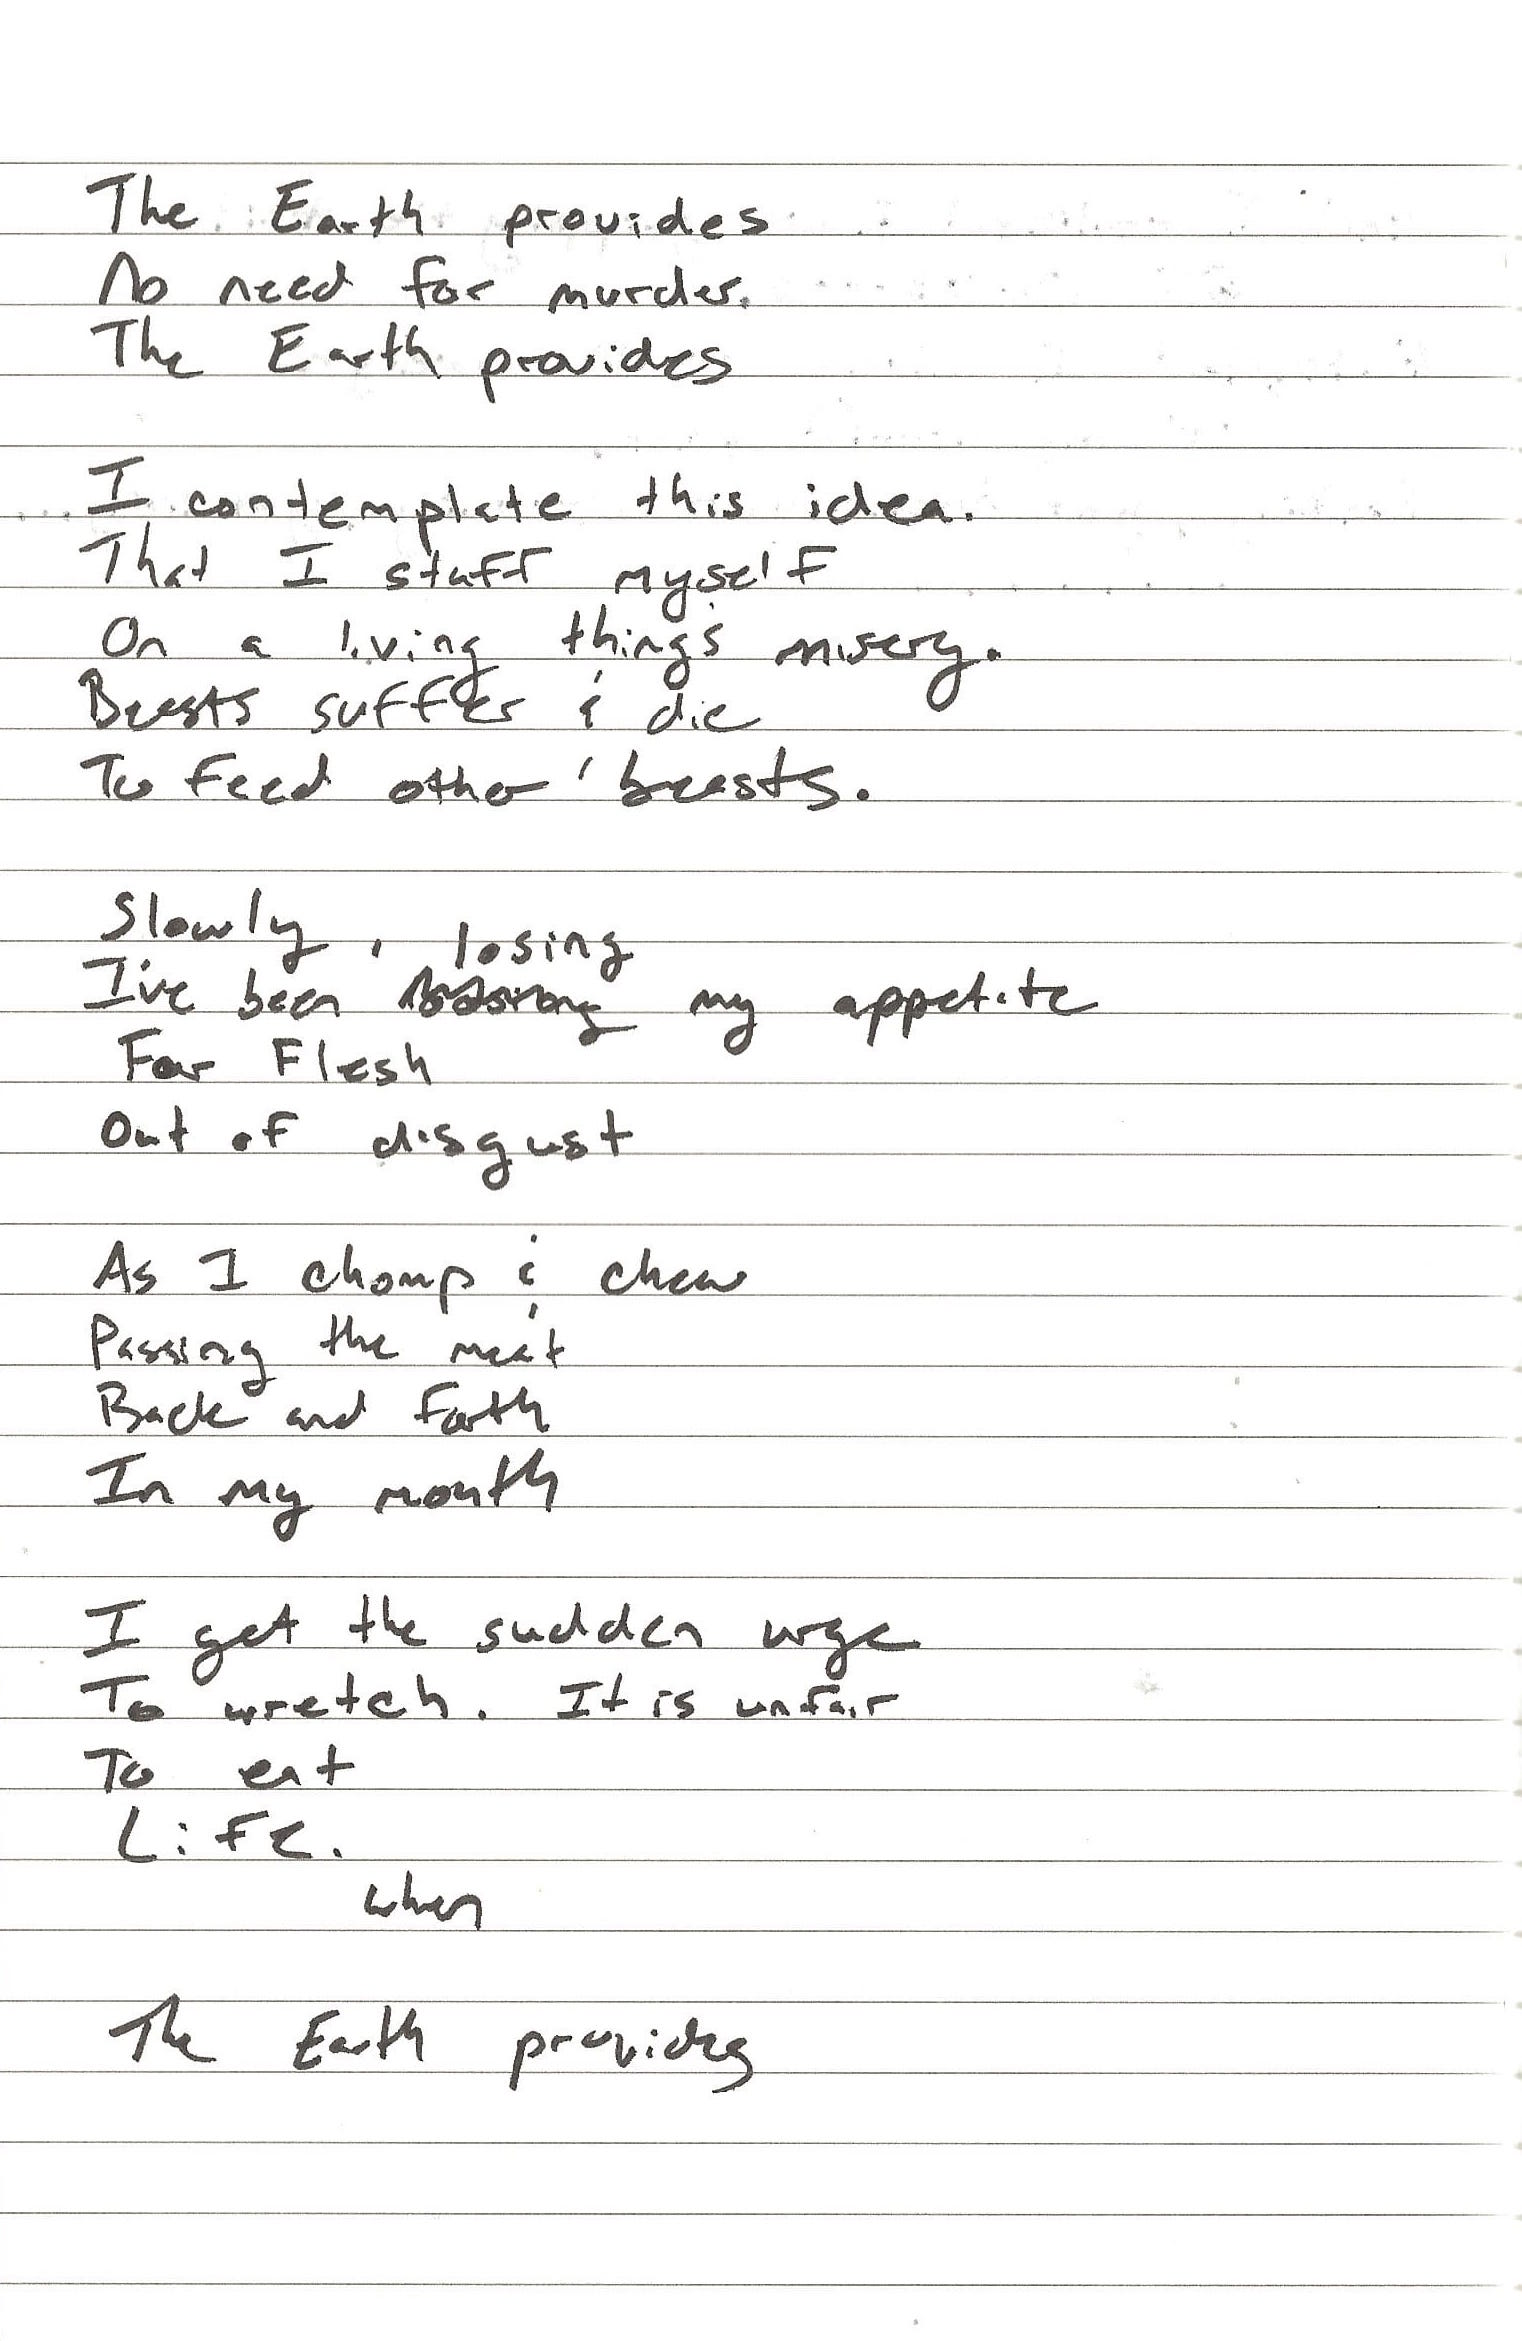 The Earth provides
No need for murder.
The Earth provides
I contemplate this idea.
That I stuff myself
On a living thing's misery.
Beasts suffer & die
To feed other beasts.
Slowly,
losing
I've been my appetite
For Flesh
Out of disgust
As I chomp & chew
Passing the meat
Back and forth
In my mouth
I get the sudden urge
To wretch. It is unfair
To eat
Life.
when
The Earth provides